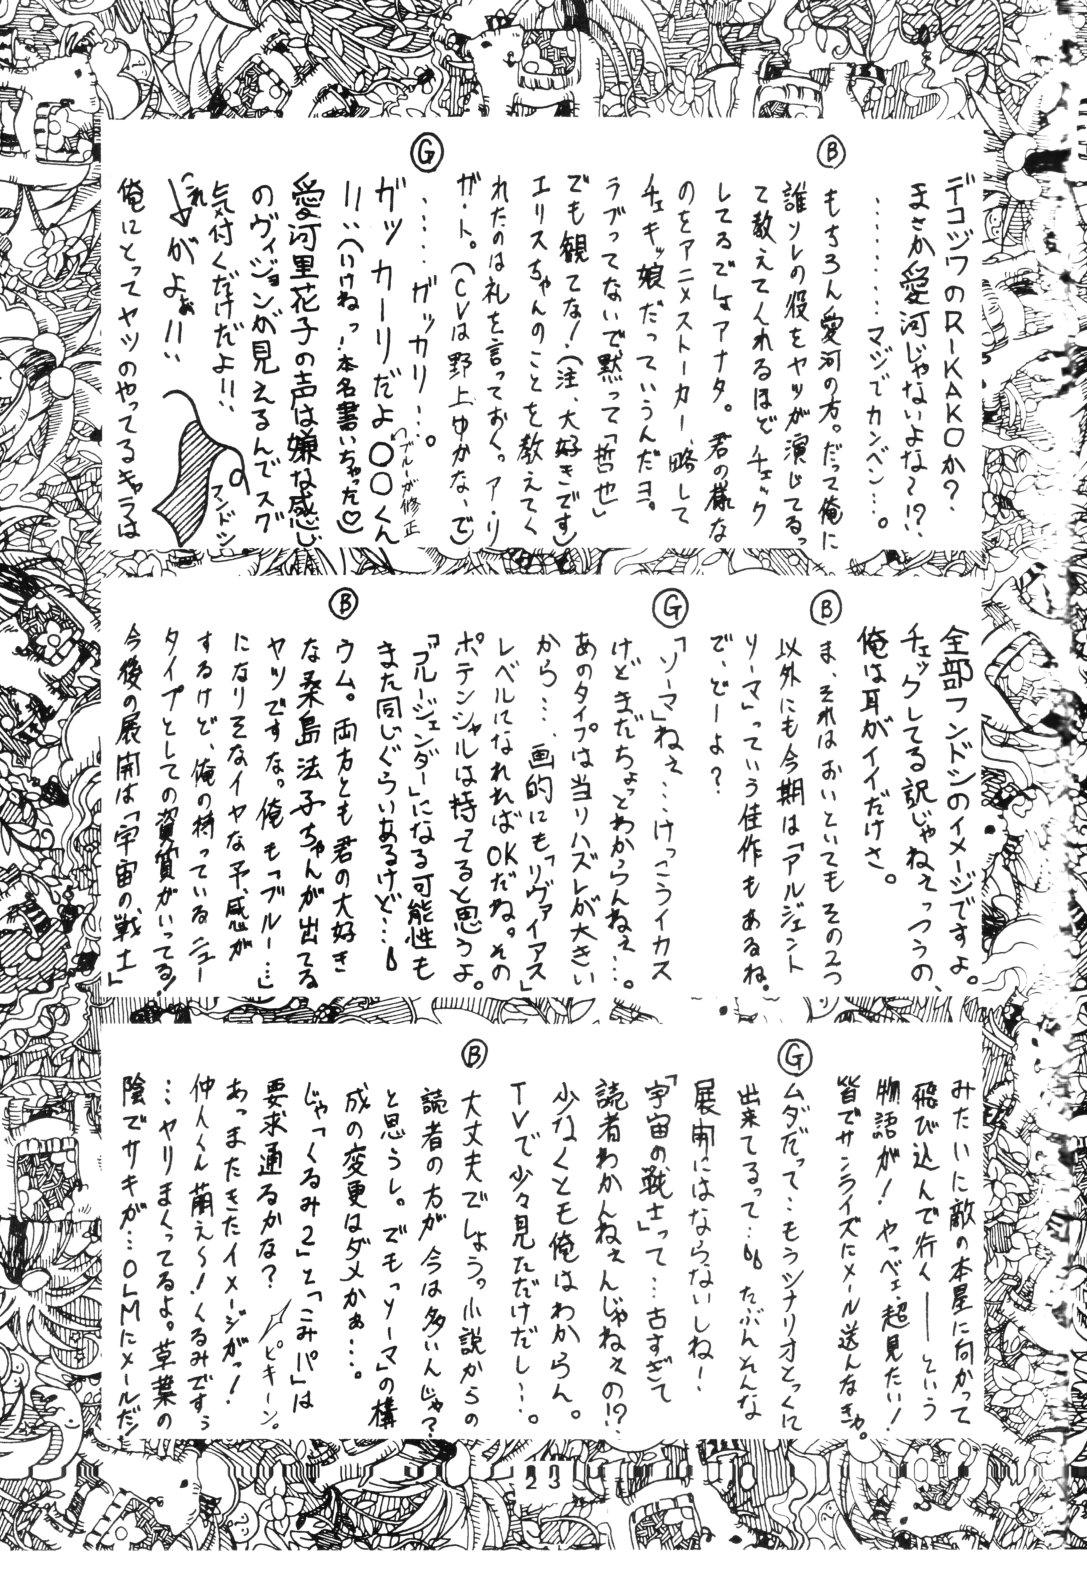 デコジワのRIKAKOか?
まさか愛河じゃないよな〜!?
………マジでカンベン…。
Ⓑ
もちろん愛河の方。だって俺に
誰ソレの役をヤツが演じてるっ
て教えてくれるほどチェック
してるでしょアナタ。君の様な
のをアニメストーカー、略して
チェキッ娘だっていうんだヨ。
ラブってないで黙って「哲也」
でも観てな!(注、大好きです)
エリスちゃんのことを教えてく
れたのは礼を言っておく。ア・リ
ガ・ト。(CVは野上ゆかな、で)
Ⓖ
……ガッカリ…。
ガッカーリだよ〇〇くん
↑ブルーが修正
!!、(いけねっ!本名書いちゃった♡)
愛河里花子の声は嫌な感じ
のヴィジョンが見えるんでスグ
気付くだけだよ!!、
これ
↓がよぉ!!、
フンドシ
俺にとってヤツのやってるキャラは
全部フンドシのイメージですよ。
チェックしてる訳じゃねぇっつうの、
俺は耳がイイだけさ。
Ⓑ
ま、それはおいといてもその2つ
以外にも今期は「アルジェント
ソーマ」っていう佳作もあるね。
で、どーよ?
Ⓖ
「ソーマ」ねぇ…けっこうイカス
けどまだちょっとわかっらんねぇ…。
あのタイプは当りハズレが大きい
から…、画的にも「リヴァイアス」
レベルになれればOKだね。その
ポテンシャルは持てると思うよ。
「ブルージェンダー」になる可能性も
また同じぐらいあるけど…
Ⓑ
ウム。両方とも君の大好き
な桑島法子ちゃんが出てる
ヤツですな。俺も「ブルー…」
になりそなイヤな予感が
するけど、俺の持っているニュー
タイプとしての資質がいってる!
今後の展開は「宇宙の戦士」
みたいに敵の本星に向かって
飛び込んで行く――という
物語が!やっべェ超見たい!
皆でサンライズにメール送んなきゃ。
Ⓖ
ムダだって…もうシナリオとっくに
出来てるって…たぶんそんな
展開にはならないしねー、
「宇宙の戦士」って…古すぎて
読者わかんねぇんじゃねぇの!?
少なくとも俺はわからん。
TVで少々見ただけだし…。
Ⓑ
大丈夫でしょう。小説からの
読者の方が今は多いんじゃ?
と思うし。でもソーマ」の構
成の変更はダメかぁ…。
じゃ「くるみ2」と「こみパ」は
要求通るかな?
ピキーン。
あっまたきたイメージがっ!
仲人くん萌え〜!くるみですぅ
…ヤリまくってるよ。草葉の
陰でサキが…OLMにメールだ!
23